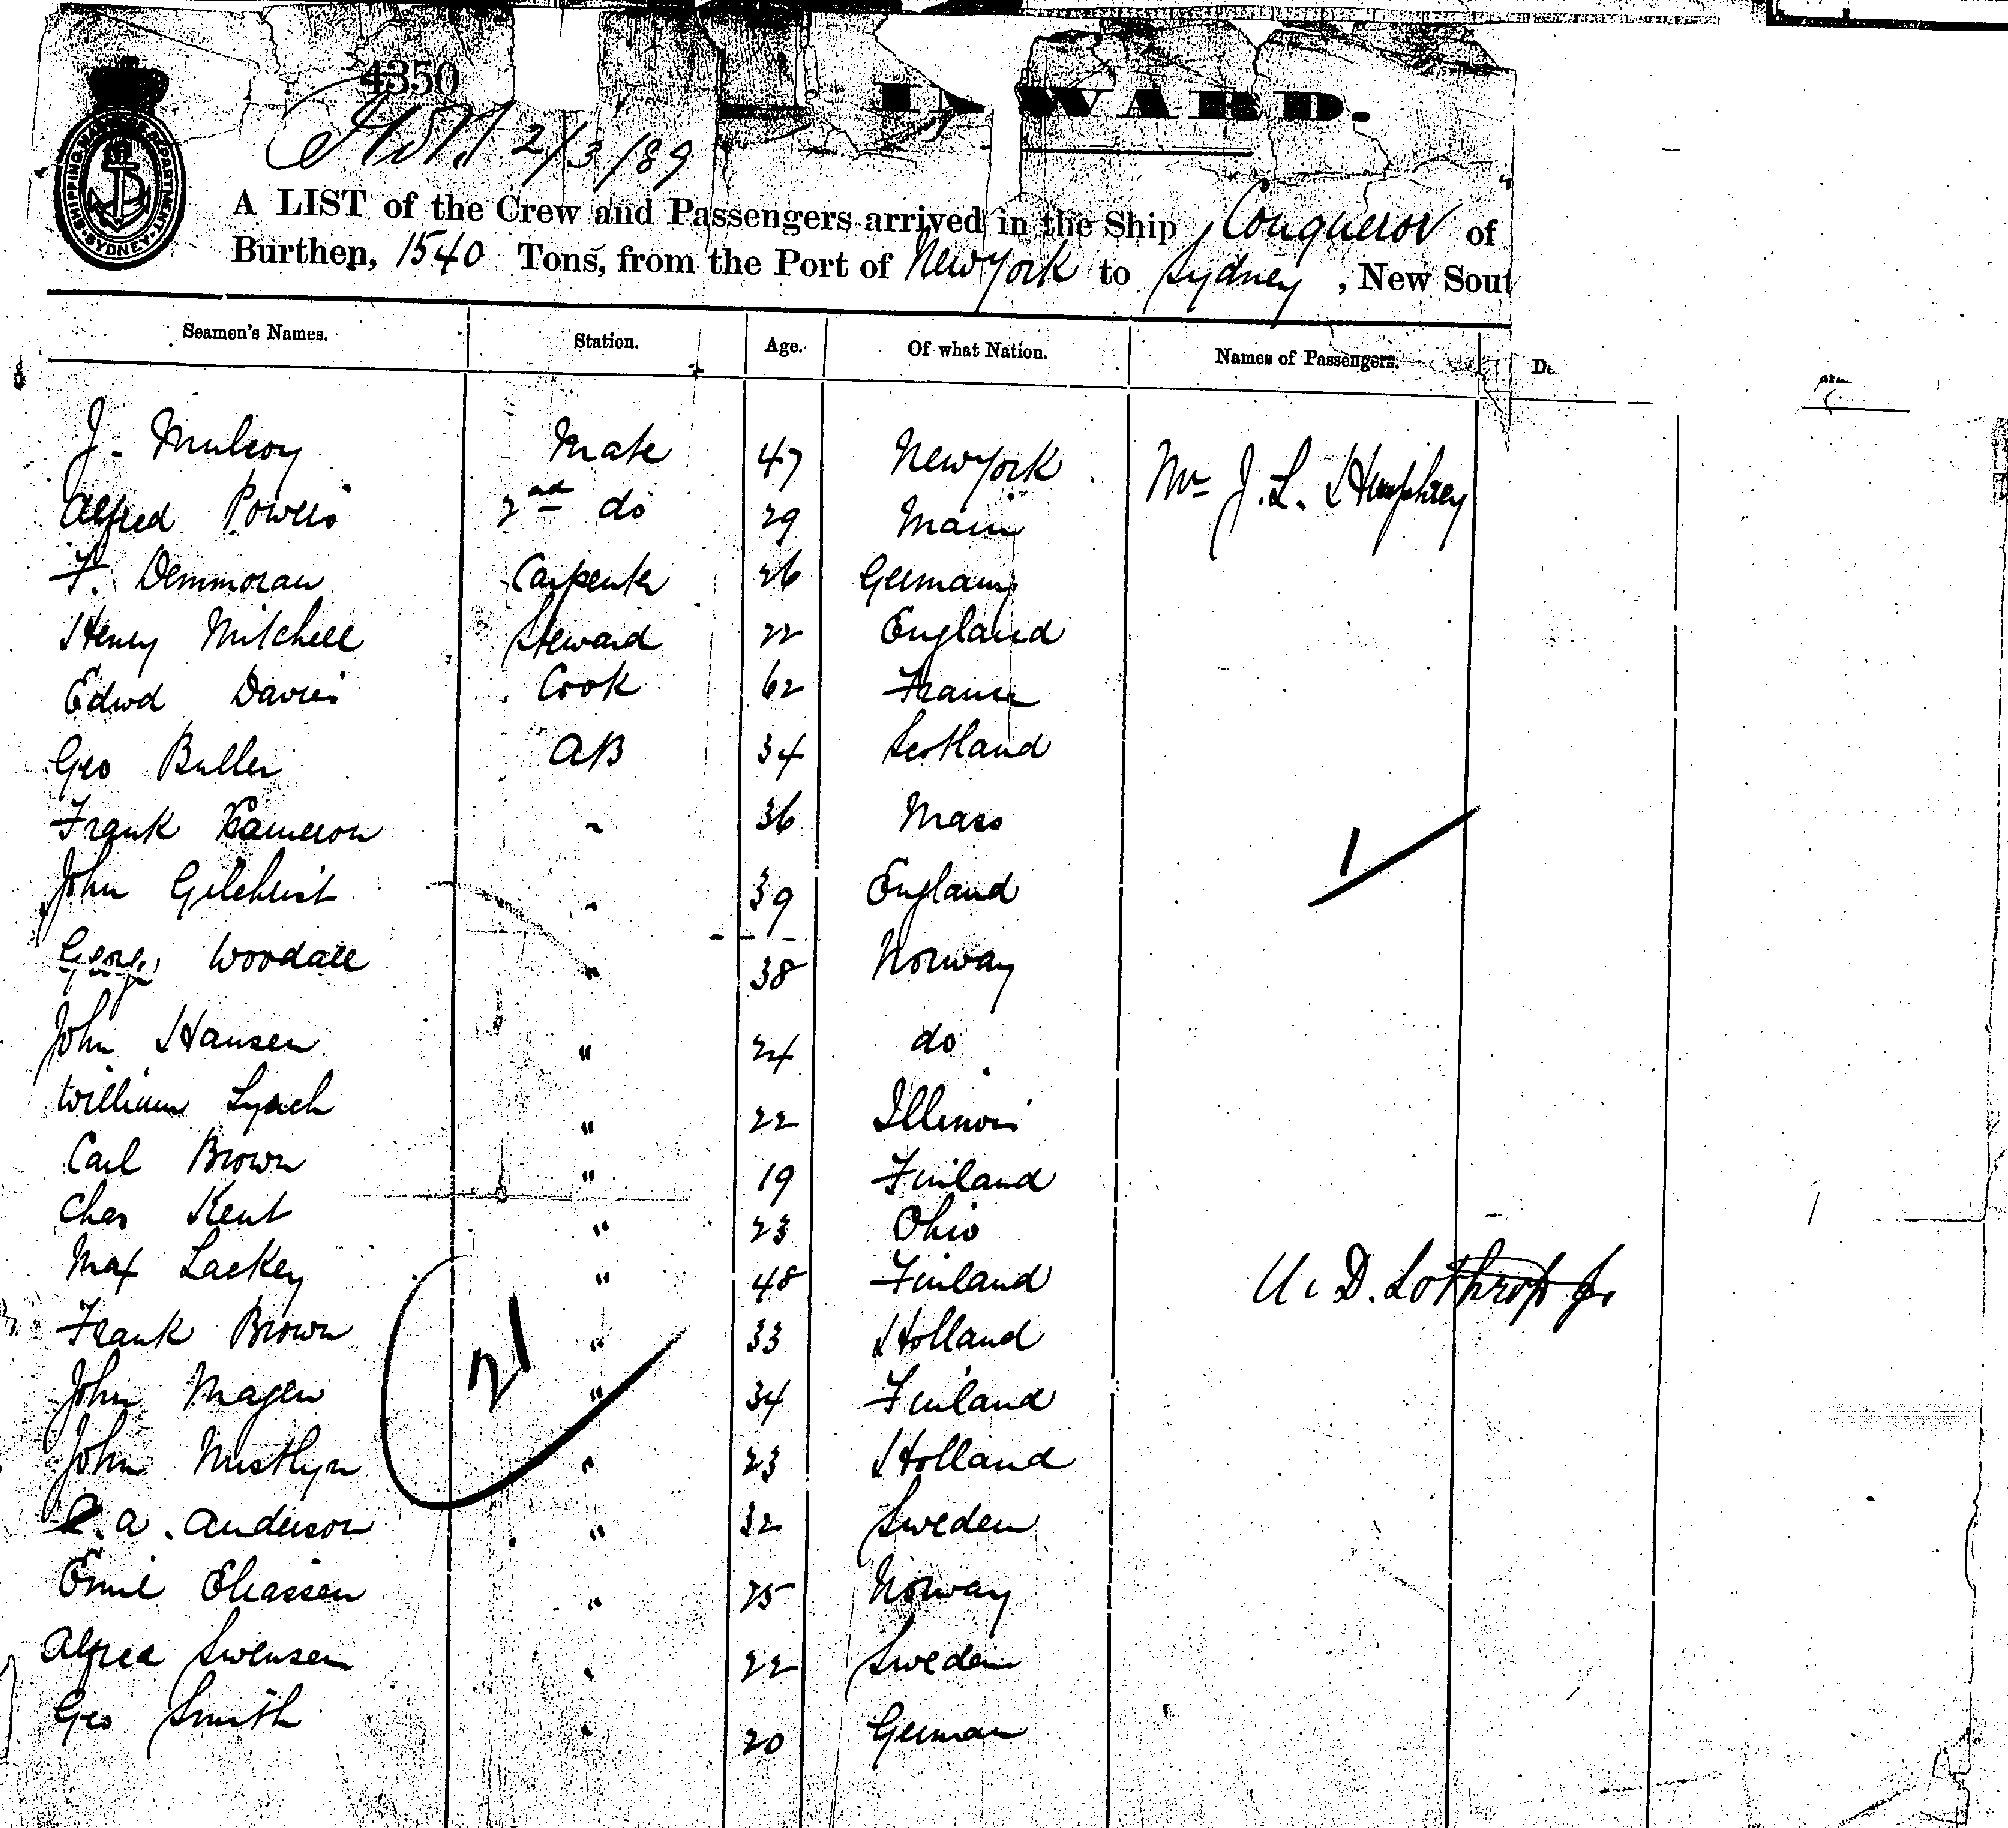 4350
INWARD.
2/3/89
SHIPPING MASTER'S DEPARTMENT SYDNEY
A LIST of the Crew and Passengers arrived in the Ship Conqueror of
Burthen, 1540 Tons, from the Port of New York to Sydney, New Sout
Seamen's Names. Station. Age. Of what Nation. Names of Passengers. De
J. Mulroy Mate 47 New York Mr J. L. Humphrey
Alfred Powers 2nd do 29 Main
F. Demmoran Carpenter 26 Germany
Henry Mitchell Steward 22 England
Edwd Davies Cook 62 France
Geo Buller AB 34 Scotland
Frank Kameron " 36 Mass 1
John Gilchrist " 39 England
George Woodall " 38 Norway
John Hansen " 24 do
William Lynch " 22 Illinois
Carl Brown " 19 Finland
Chas Kent " 23 Ohio
Max Lackey " 48 Finland U. D. Lothrop Jr
Frank Brown " 33 Holland
21
John Magen " 34 Finland
John " 23 Holland
C. A. Anderson " 32 Sweden
Emil Eliassen " 25 Norway
Alfred Swensen " 22 Sweden
Geo Smith " 20 German